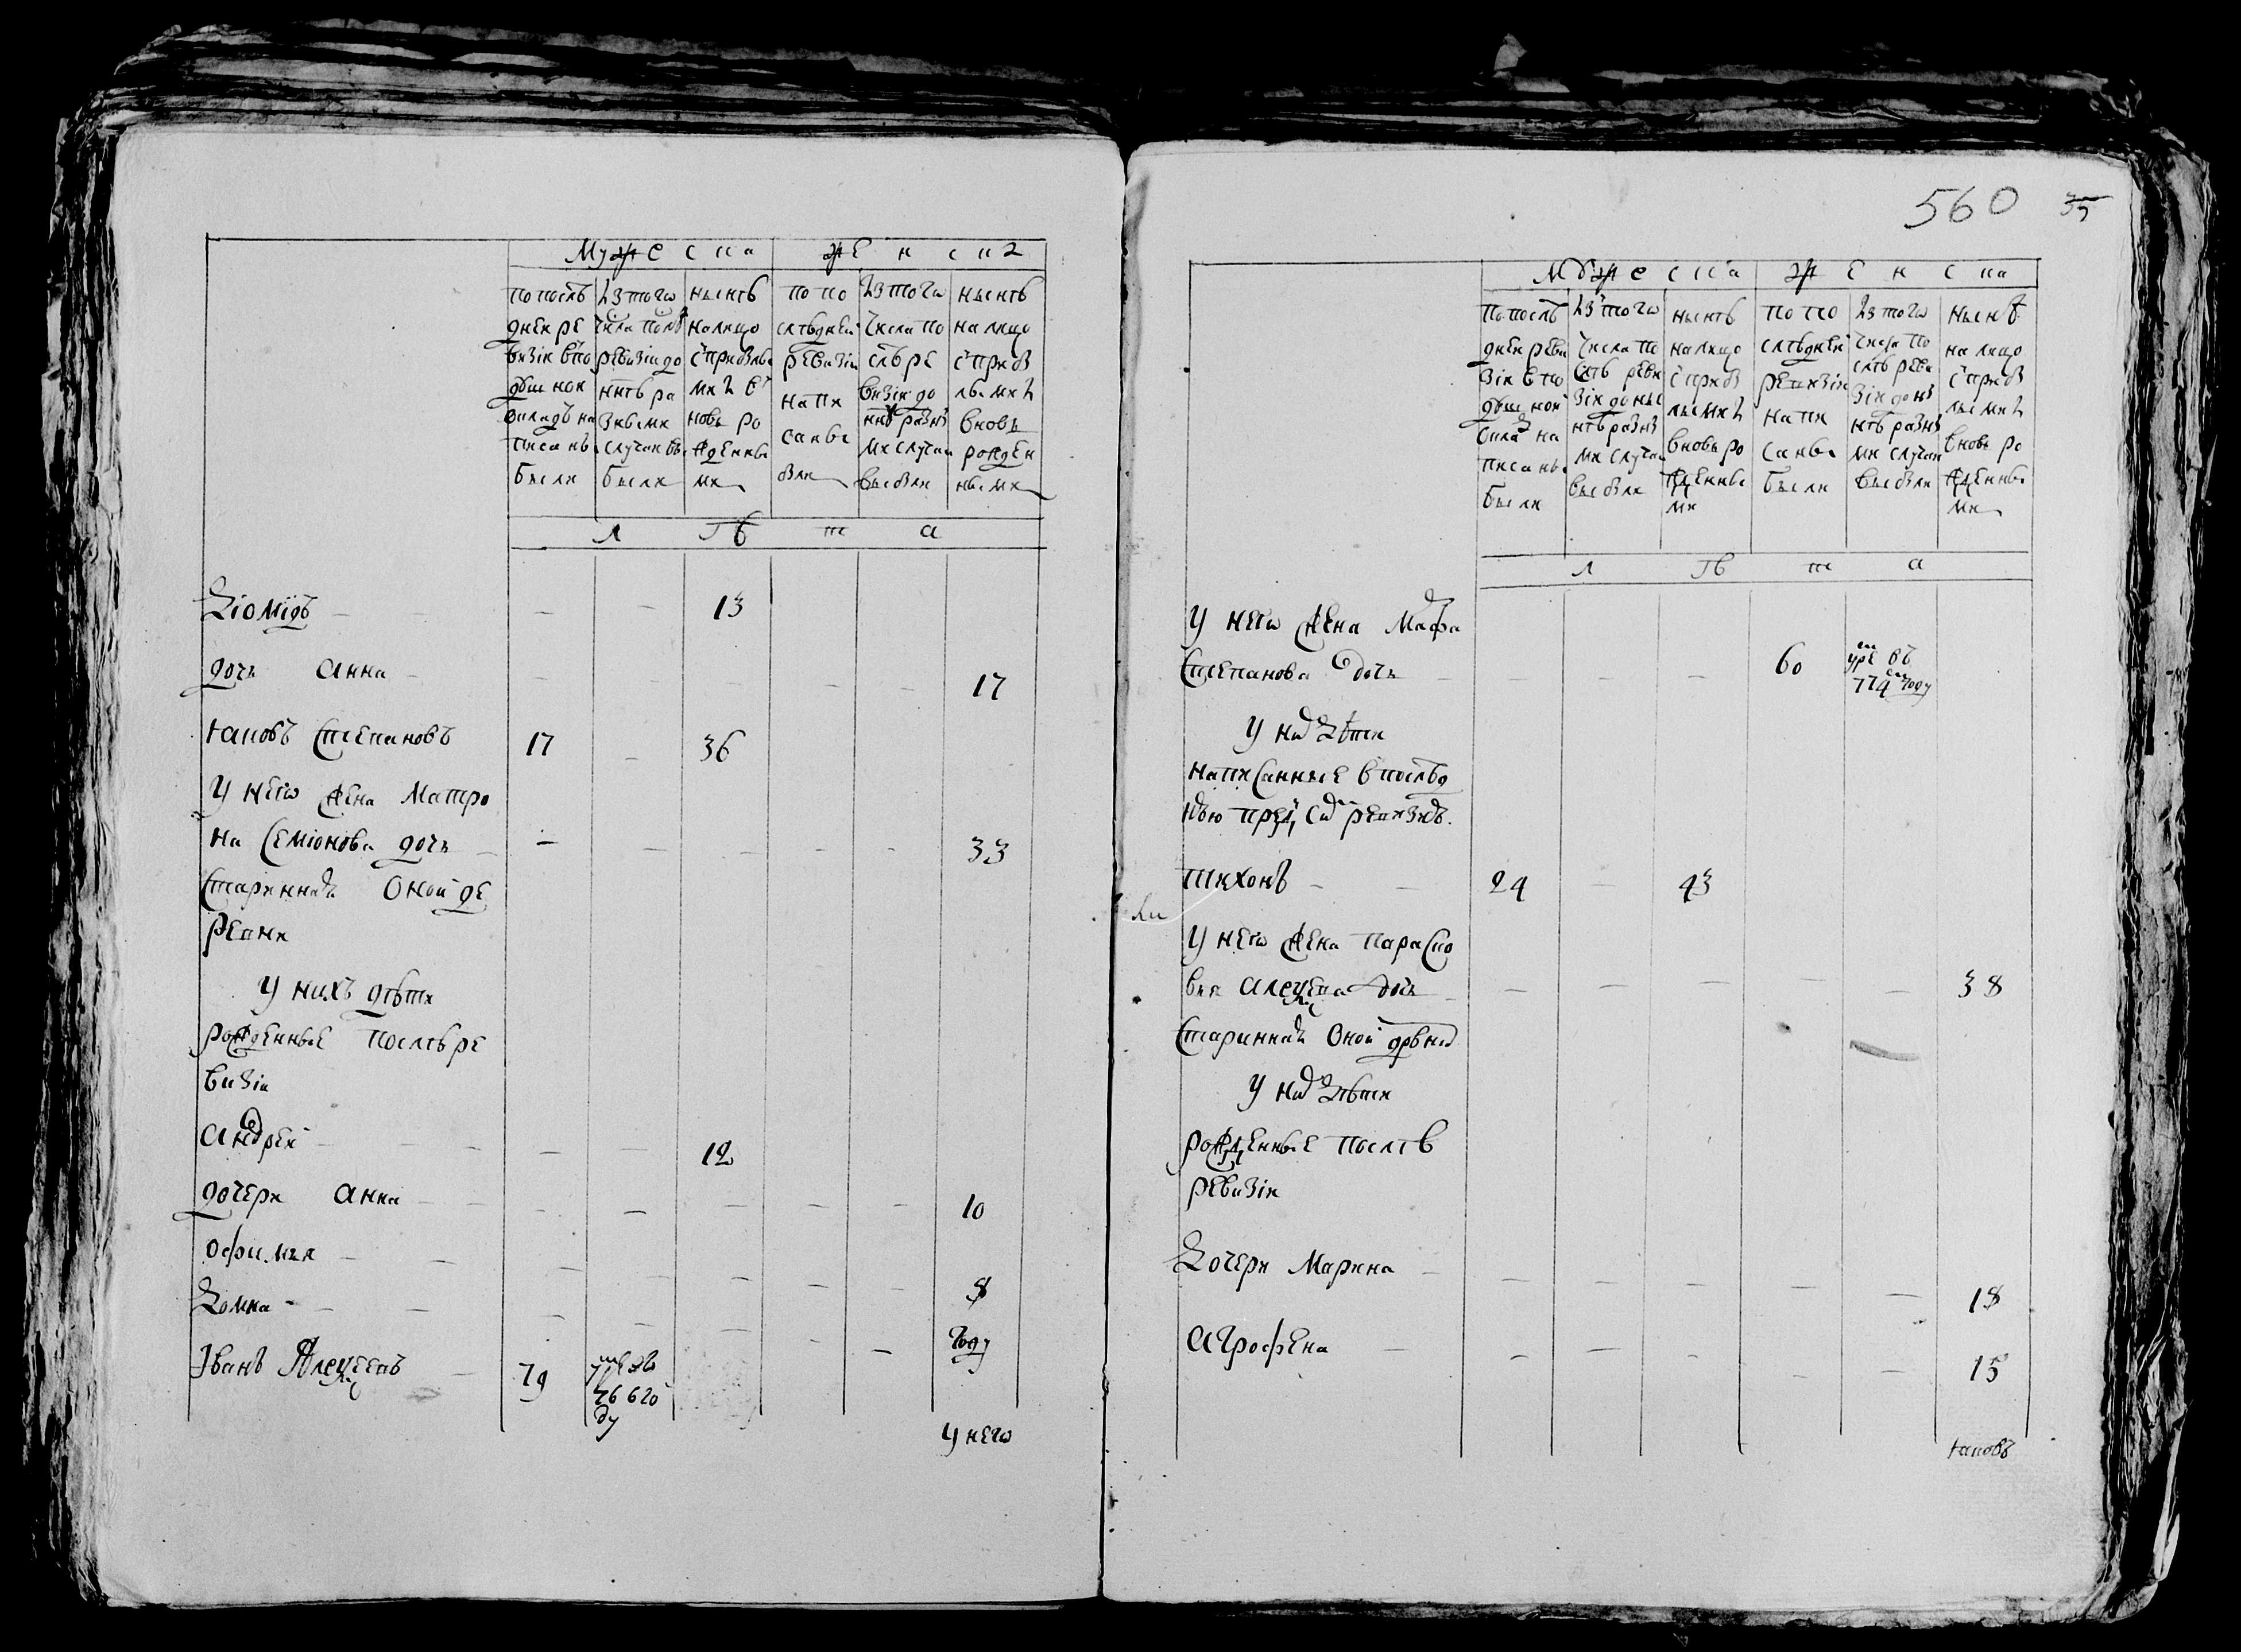 Мужеска женска
по послѣ
дней ре
визіи впо
душной
окладъ на
писаны
были
изтого
числа послѣ
ревизіи до
нѣ ра
зными
случаи вы
были
нынѣ
налицо
с прибылы
ми и в
новь ро
жденны
ми
по по
слѣдней
ревизіи
напи
саны
были
изтого
числа по
слѣ ре
визіи до
ннѣ разны
ми случаи
выбыли
нынѣ
на лицо
с прибы
лыми и
вновь
рожден
ными
л ѣ т а
Діомидъ — — — 13
дочь Анна — — — — — — 17
Іаковъ Степановъ 17 — 36
У него жена Матро
на Семіонова дочь — — — — — — 33
Стариннаѧ оной де
ревни
У нихъ дѣти
рожденные послѣ ре
визіи
Андрей — — — 12
дочери Анна — — — — — — 10
Офимья — — — — — — — 8
Домна — — — — — — — году
Іванъ Алеѯеевъ — 79 умре въ
766 го
ду
У него
560
35
Мужеска женска
По послѣ
дней реви
зіи впо
душной
оклад на
писаны
были
изтого
числа по
слѣ реви
зіи до ны
нѣ разны
ми случаи
выбыли
нынѣ
налицо
с прибы
лыми и
вновь ро
жденны
ми
по по
слѣдней
ревизіи
напи
саны
были
изтого
числа по
слѣ реви
зіи до ны
нѣ разны
ми случаи
выбыли
нынѣ
на лицо
с прибы
лыми и
вновь ро
жденны
ми
л ѣ т а
У него жена Марфа
Степанова дочь — — — — 60 умре въ
774 году
У них дѣти
написанные в послѣд
нѣю пред сим ревизию
Тихонъ — — 24 — 43
У него жена Параско
вья Алеѯеева дочь — — — — — — 38
Стариннаѧ оной дрвни
У них дѣти
рожденные послѣ
ревизіи
Дочери Марина — — — — — — 18
Агрофена — — — — — — 15
Іаковъ